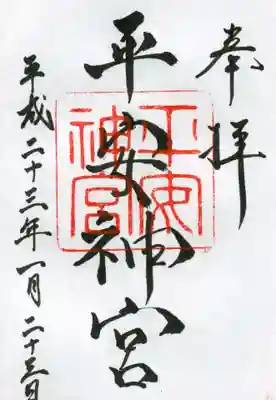 奉拝
平安神宮
平安神宮
平成二十三年一月二十三日